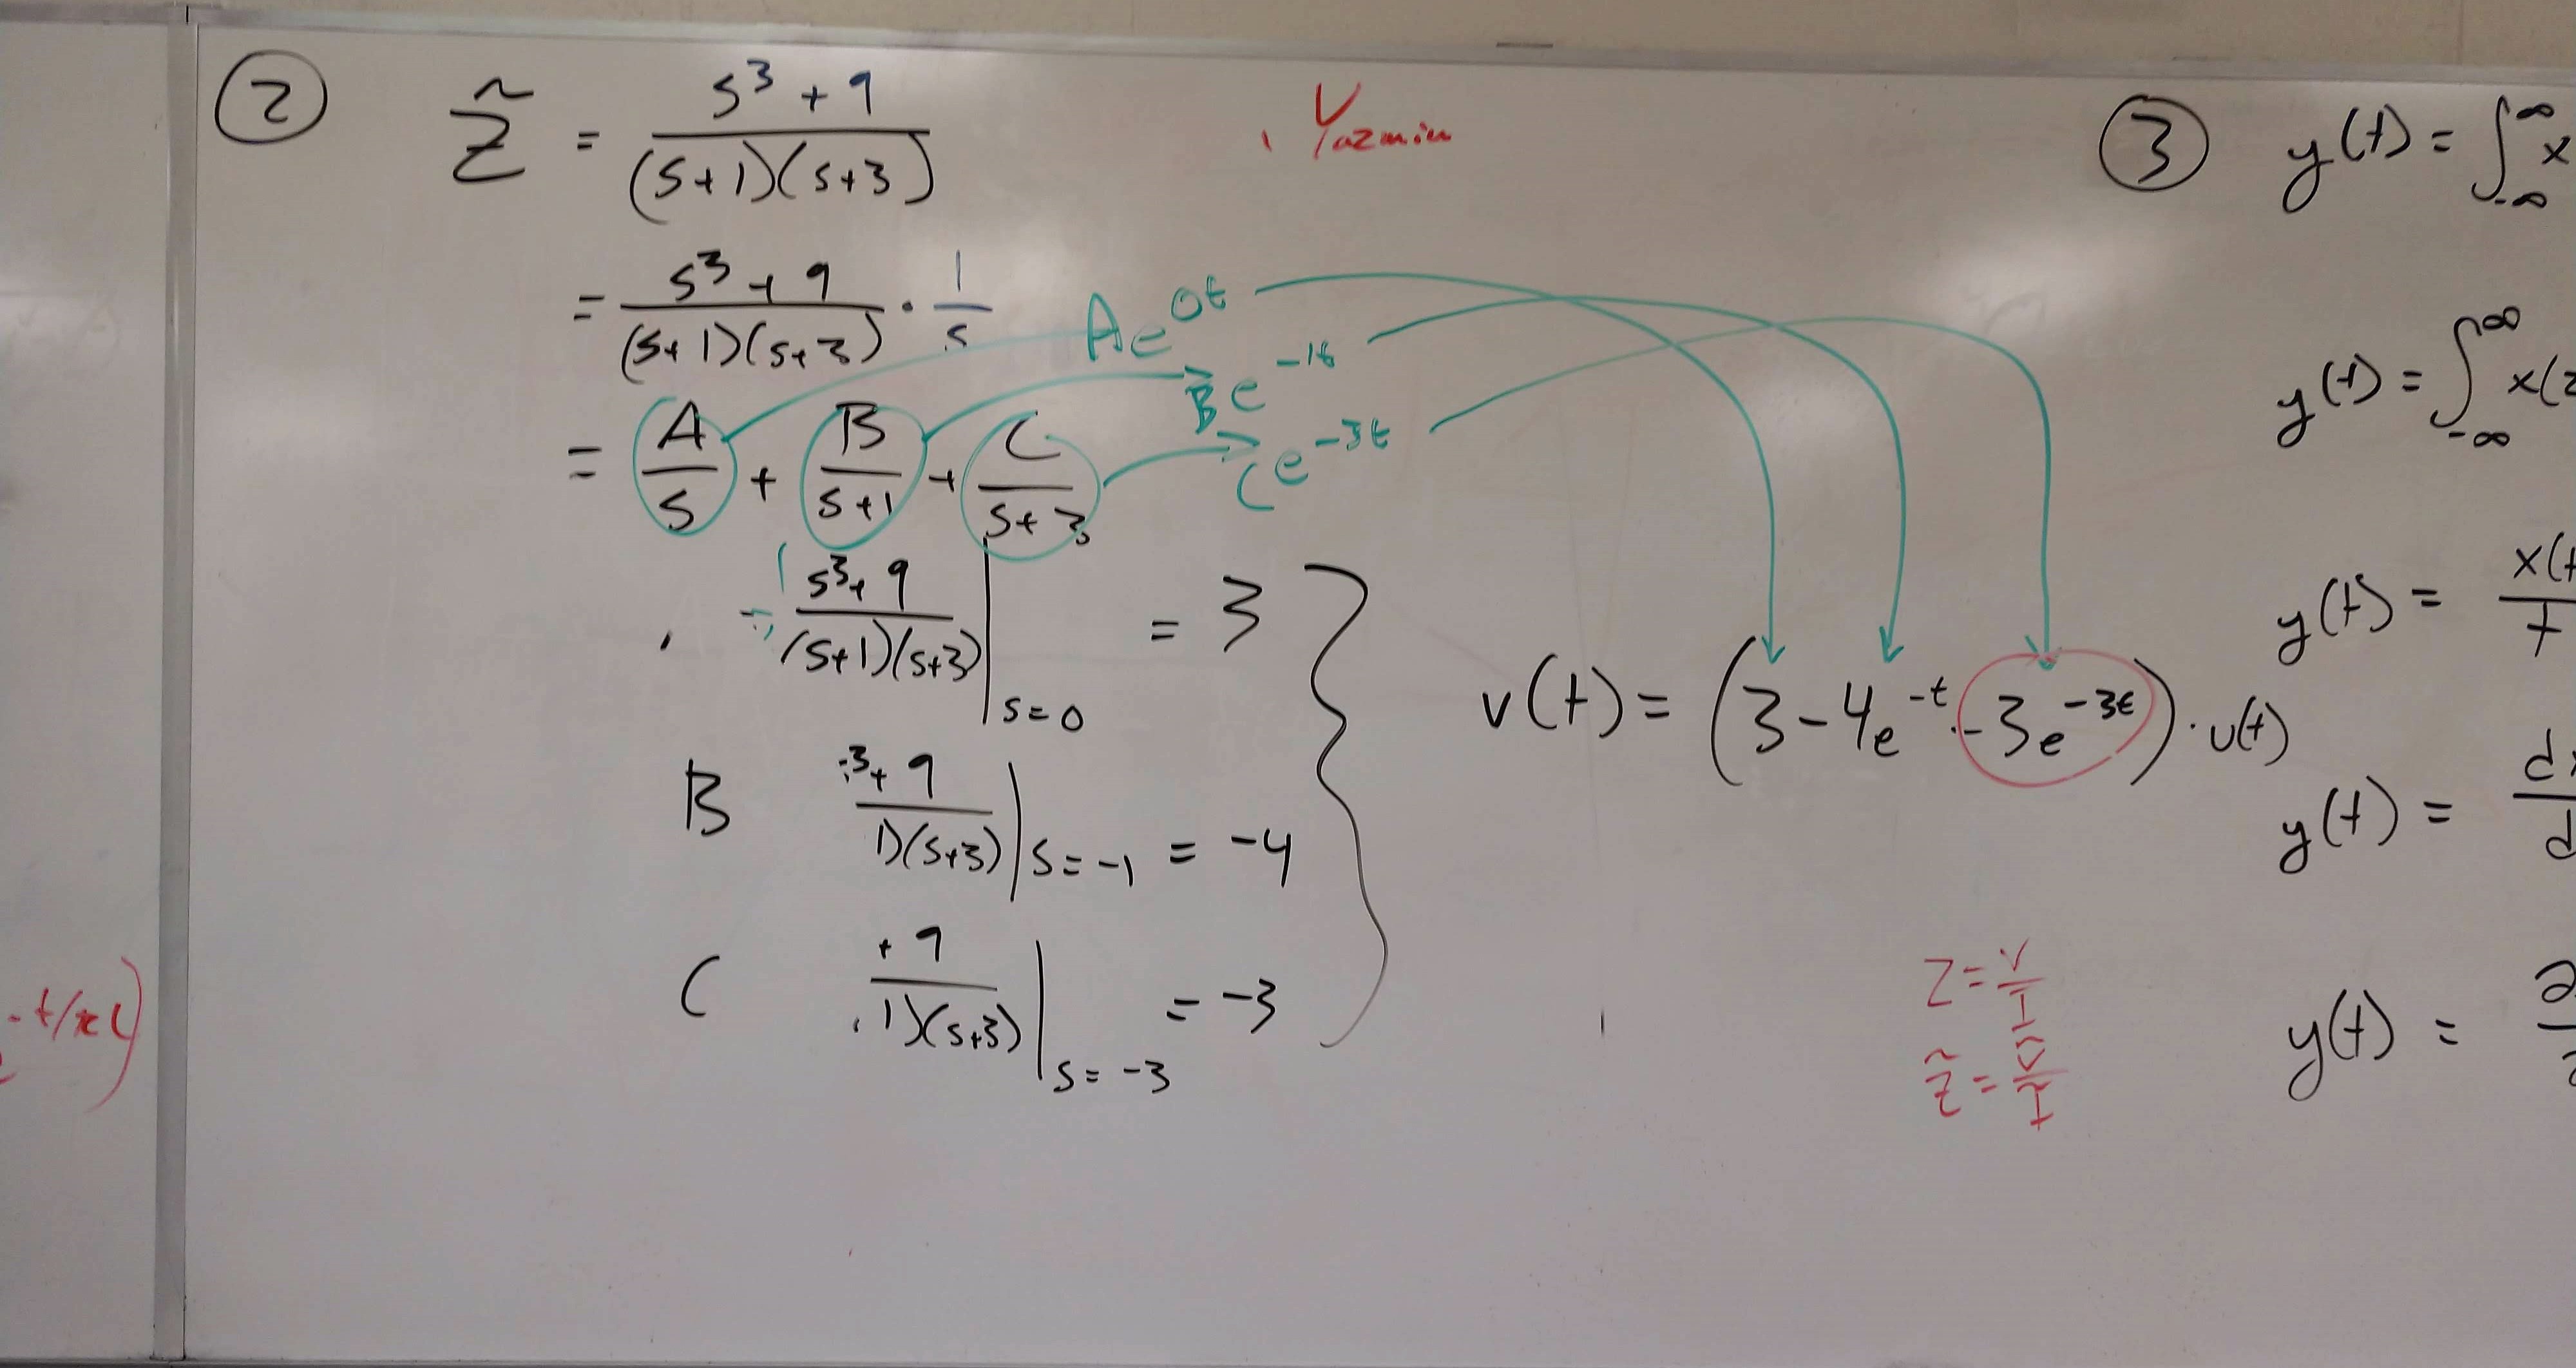 ② Z̃ = (s³ + 9) / ((s+1)(s+3))
Yazmin
= (s³ + 9) / ((s+1)(s+3)) · 1/s
= A/s + B/(s+1) + C/(s+3)
Ae^{0t}
Be^{-1t}
Ce^{-3t}
(s³ + 9) / ((s+1)(s+3)) |_{s=0} = 3
B ³ + 9 / 1)(s+3) |_{s=-1} = -4
C + 9 / 1)(s+3) |_{s=-3} = -3
v(t) = (3 - 4e^{-t} - 3e^{-3t}) · u(t)
Z = V/I
Z̃ = Ṽ/Ĩ
③ y(t) = ∫_{-∞}^{∞} x
y(t) = ∫_{-∞}^{∞} x(
y(t) = x(t
y(t) = d
y(t) =
-t/